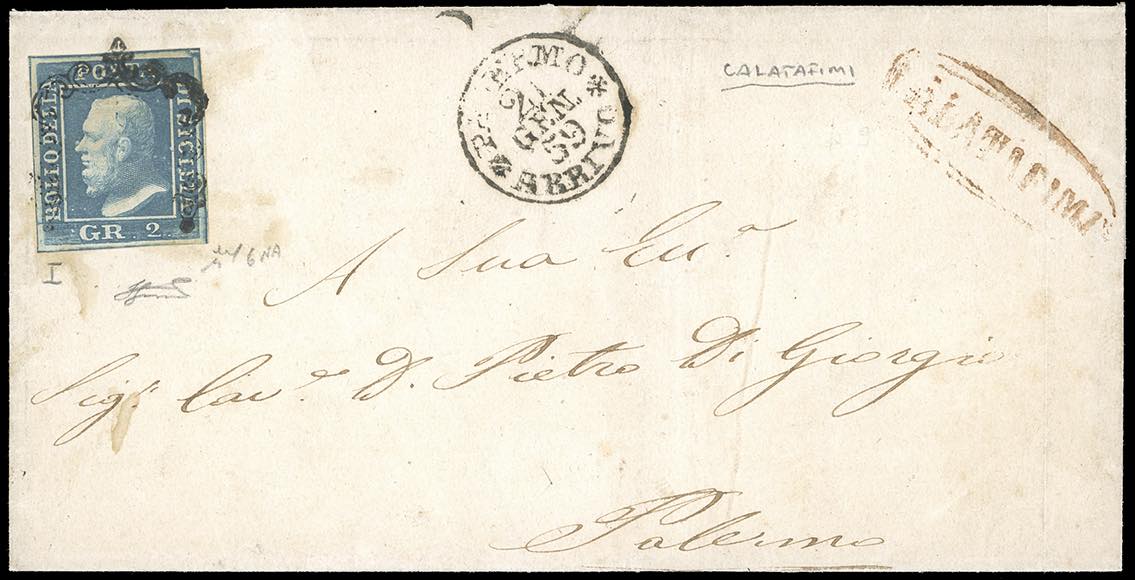 BOLLO DELLA POSTA DI SICILIA
GR. 2.
PALERMO
GEN
59
ARRIVO
CALATAFIMI
CALATAFIMI
I
A Sua Ecc.ª
Sig.r Cav.e D. Pietro Di Giorgio
Palermo